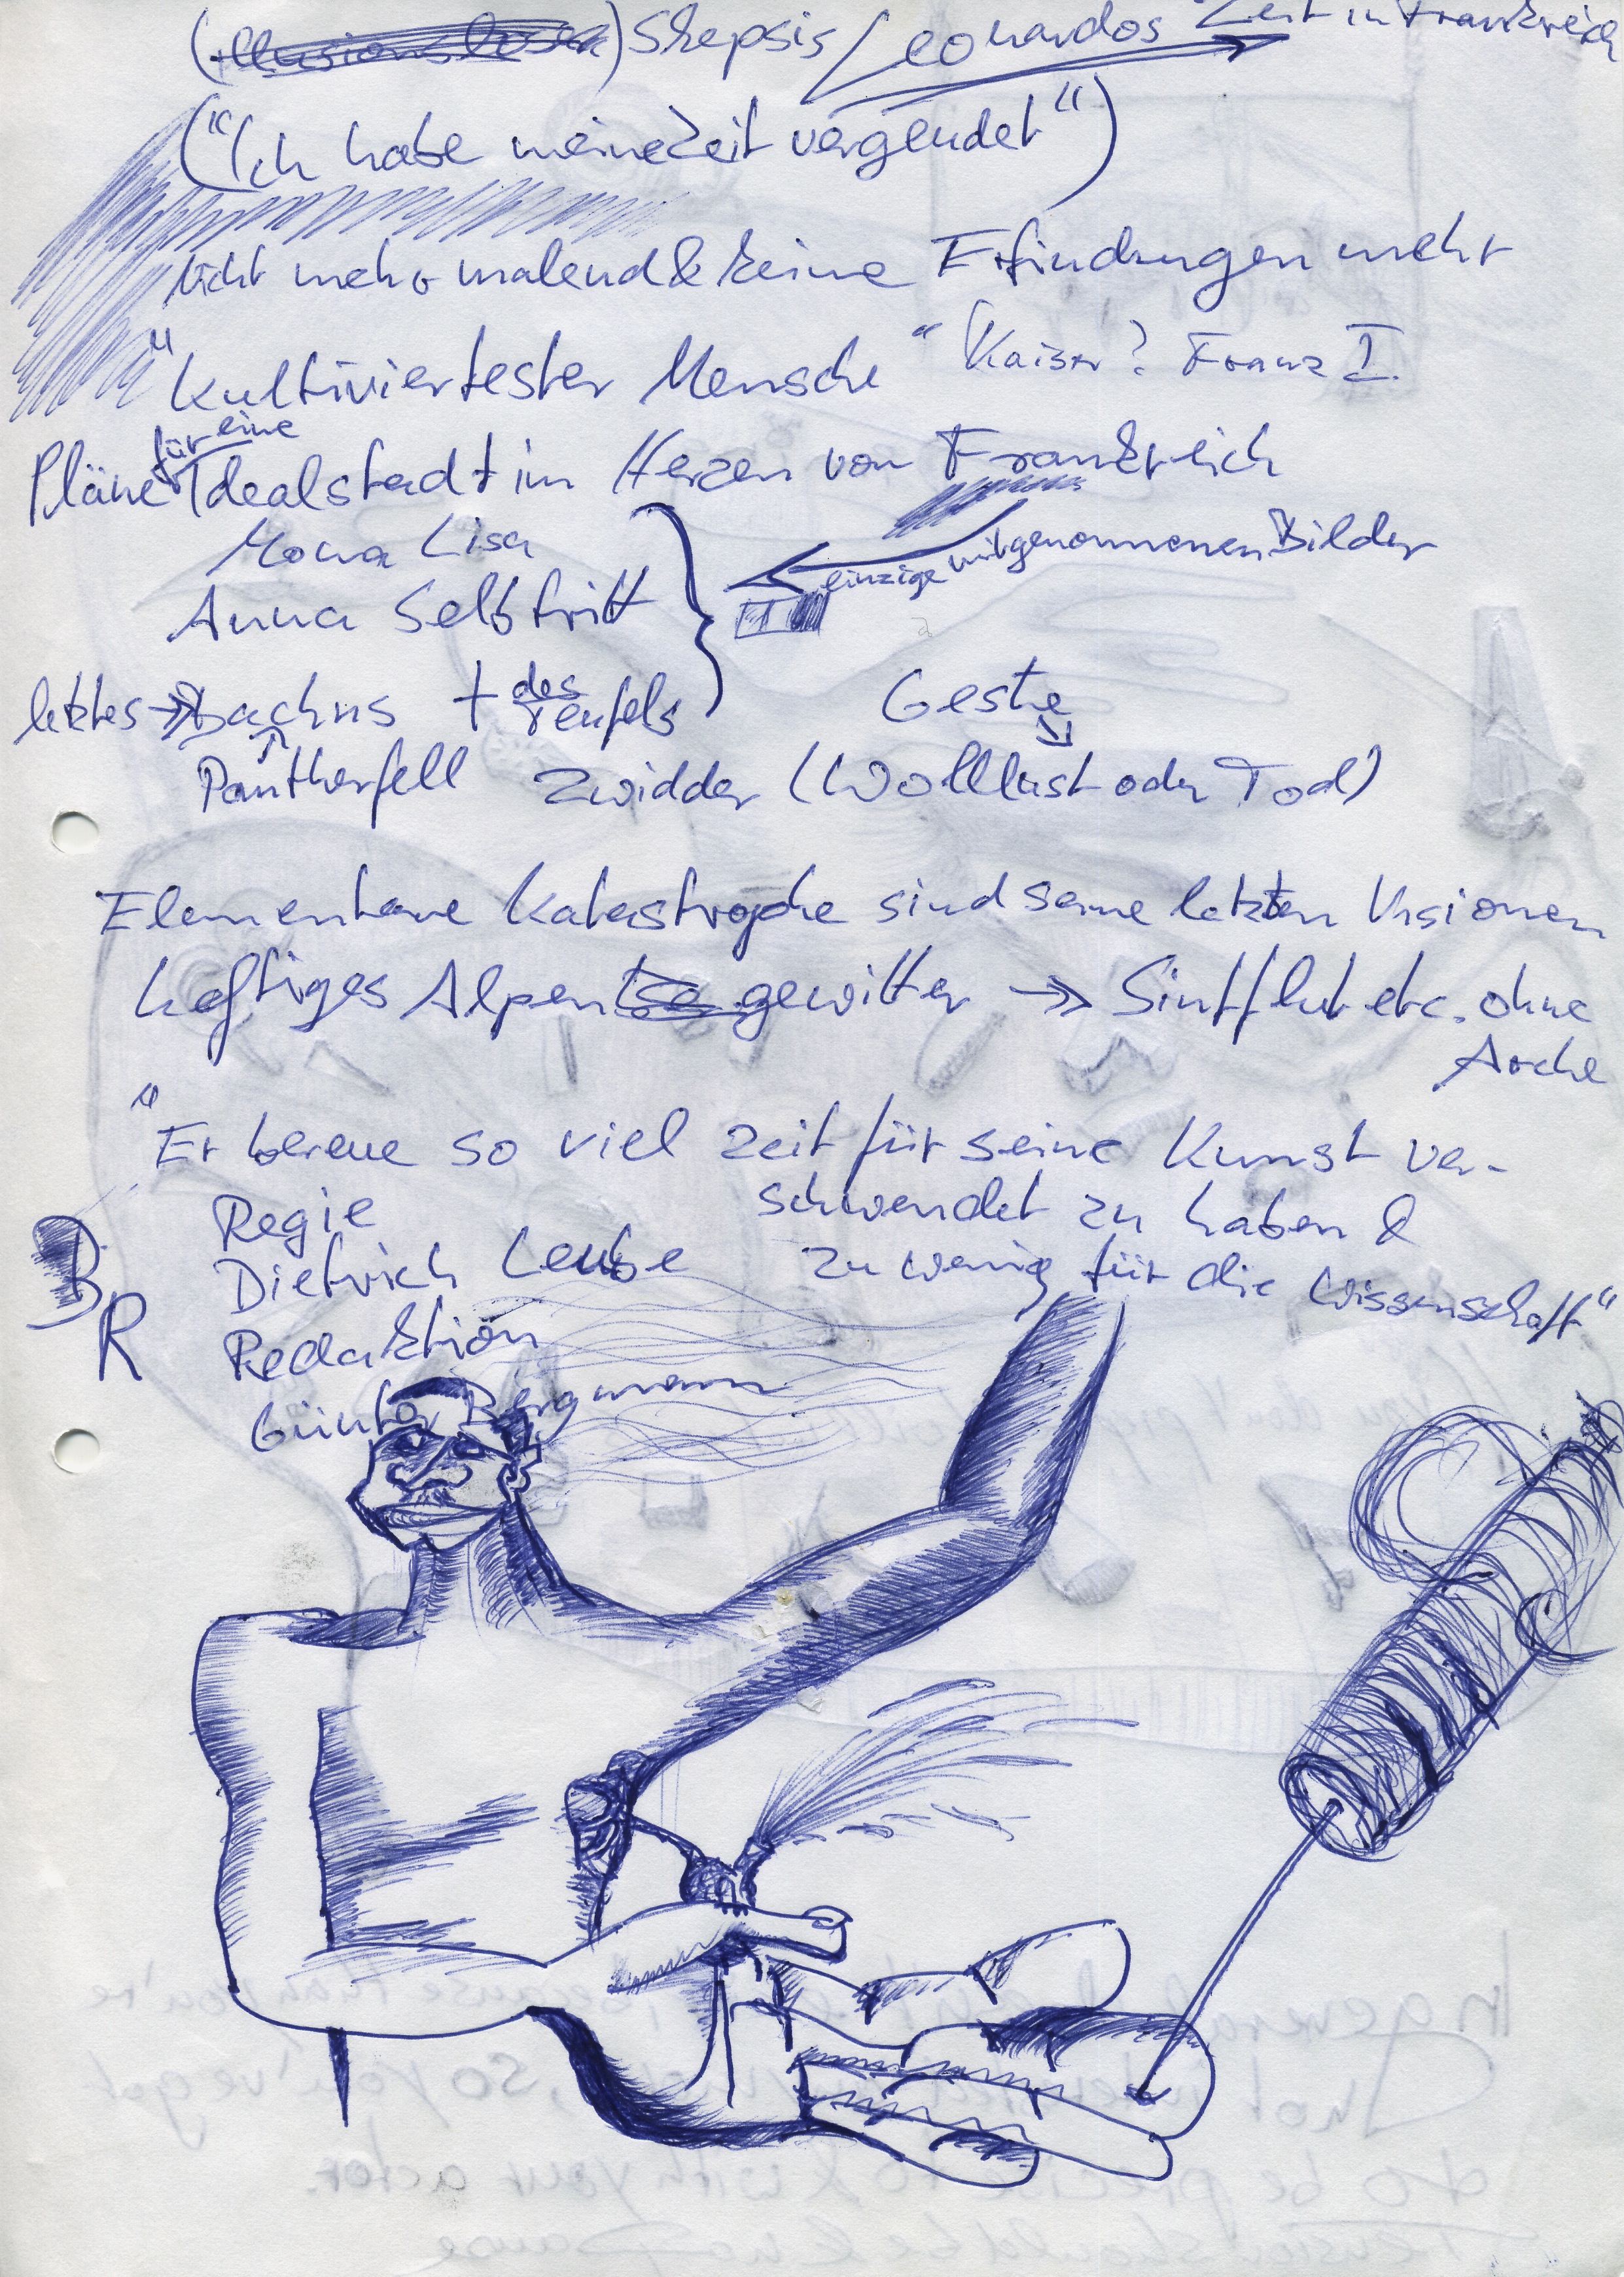 (illusionslosen) Skepsis Leonardos Zeit in Frankreich
("Ich habe meine Zeit vergeudet")
nicht mehr malend & keine Erfindungen mehr
"Kultiviertester Mensche" Kaiser? Franz I.
Pläne für eine Idealstadt im Herzen von Frankreich
Mona Lisa
einzige mitgenommenen Bilder
Anna Selbtritt
letztes → Bachus + des Teufels Geste
Pantherfell Zwidder (Wolllust oder Tod)
Elementare Katastrophe sind seine letzten Visionen
heftiges Alpen gewitter → Sintflut etc. ohne
Arche
"Er bereue so viel Zeit für seine Kunst ver-
schwendet zu haben &
zu wenig für die Wissenschaft"
Regie
Dietrich Leube
BR
Redaktion
Günter Bergmann
In general
not
to be precise & with your actor.